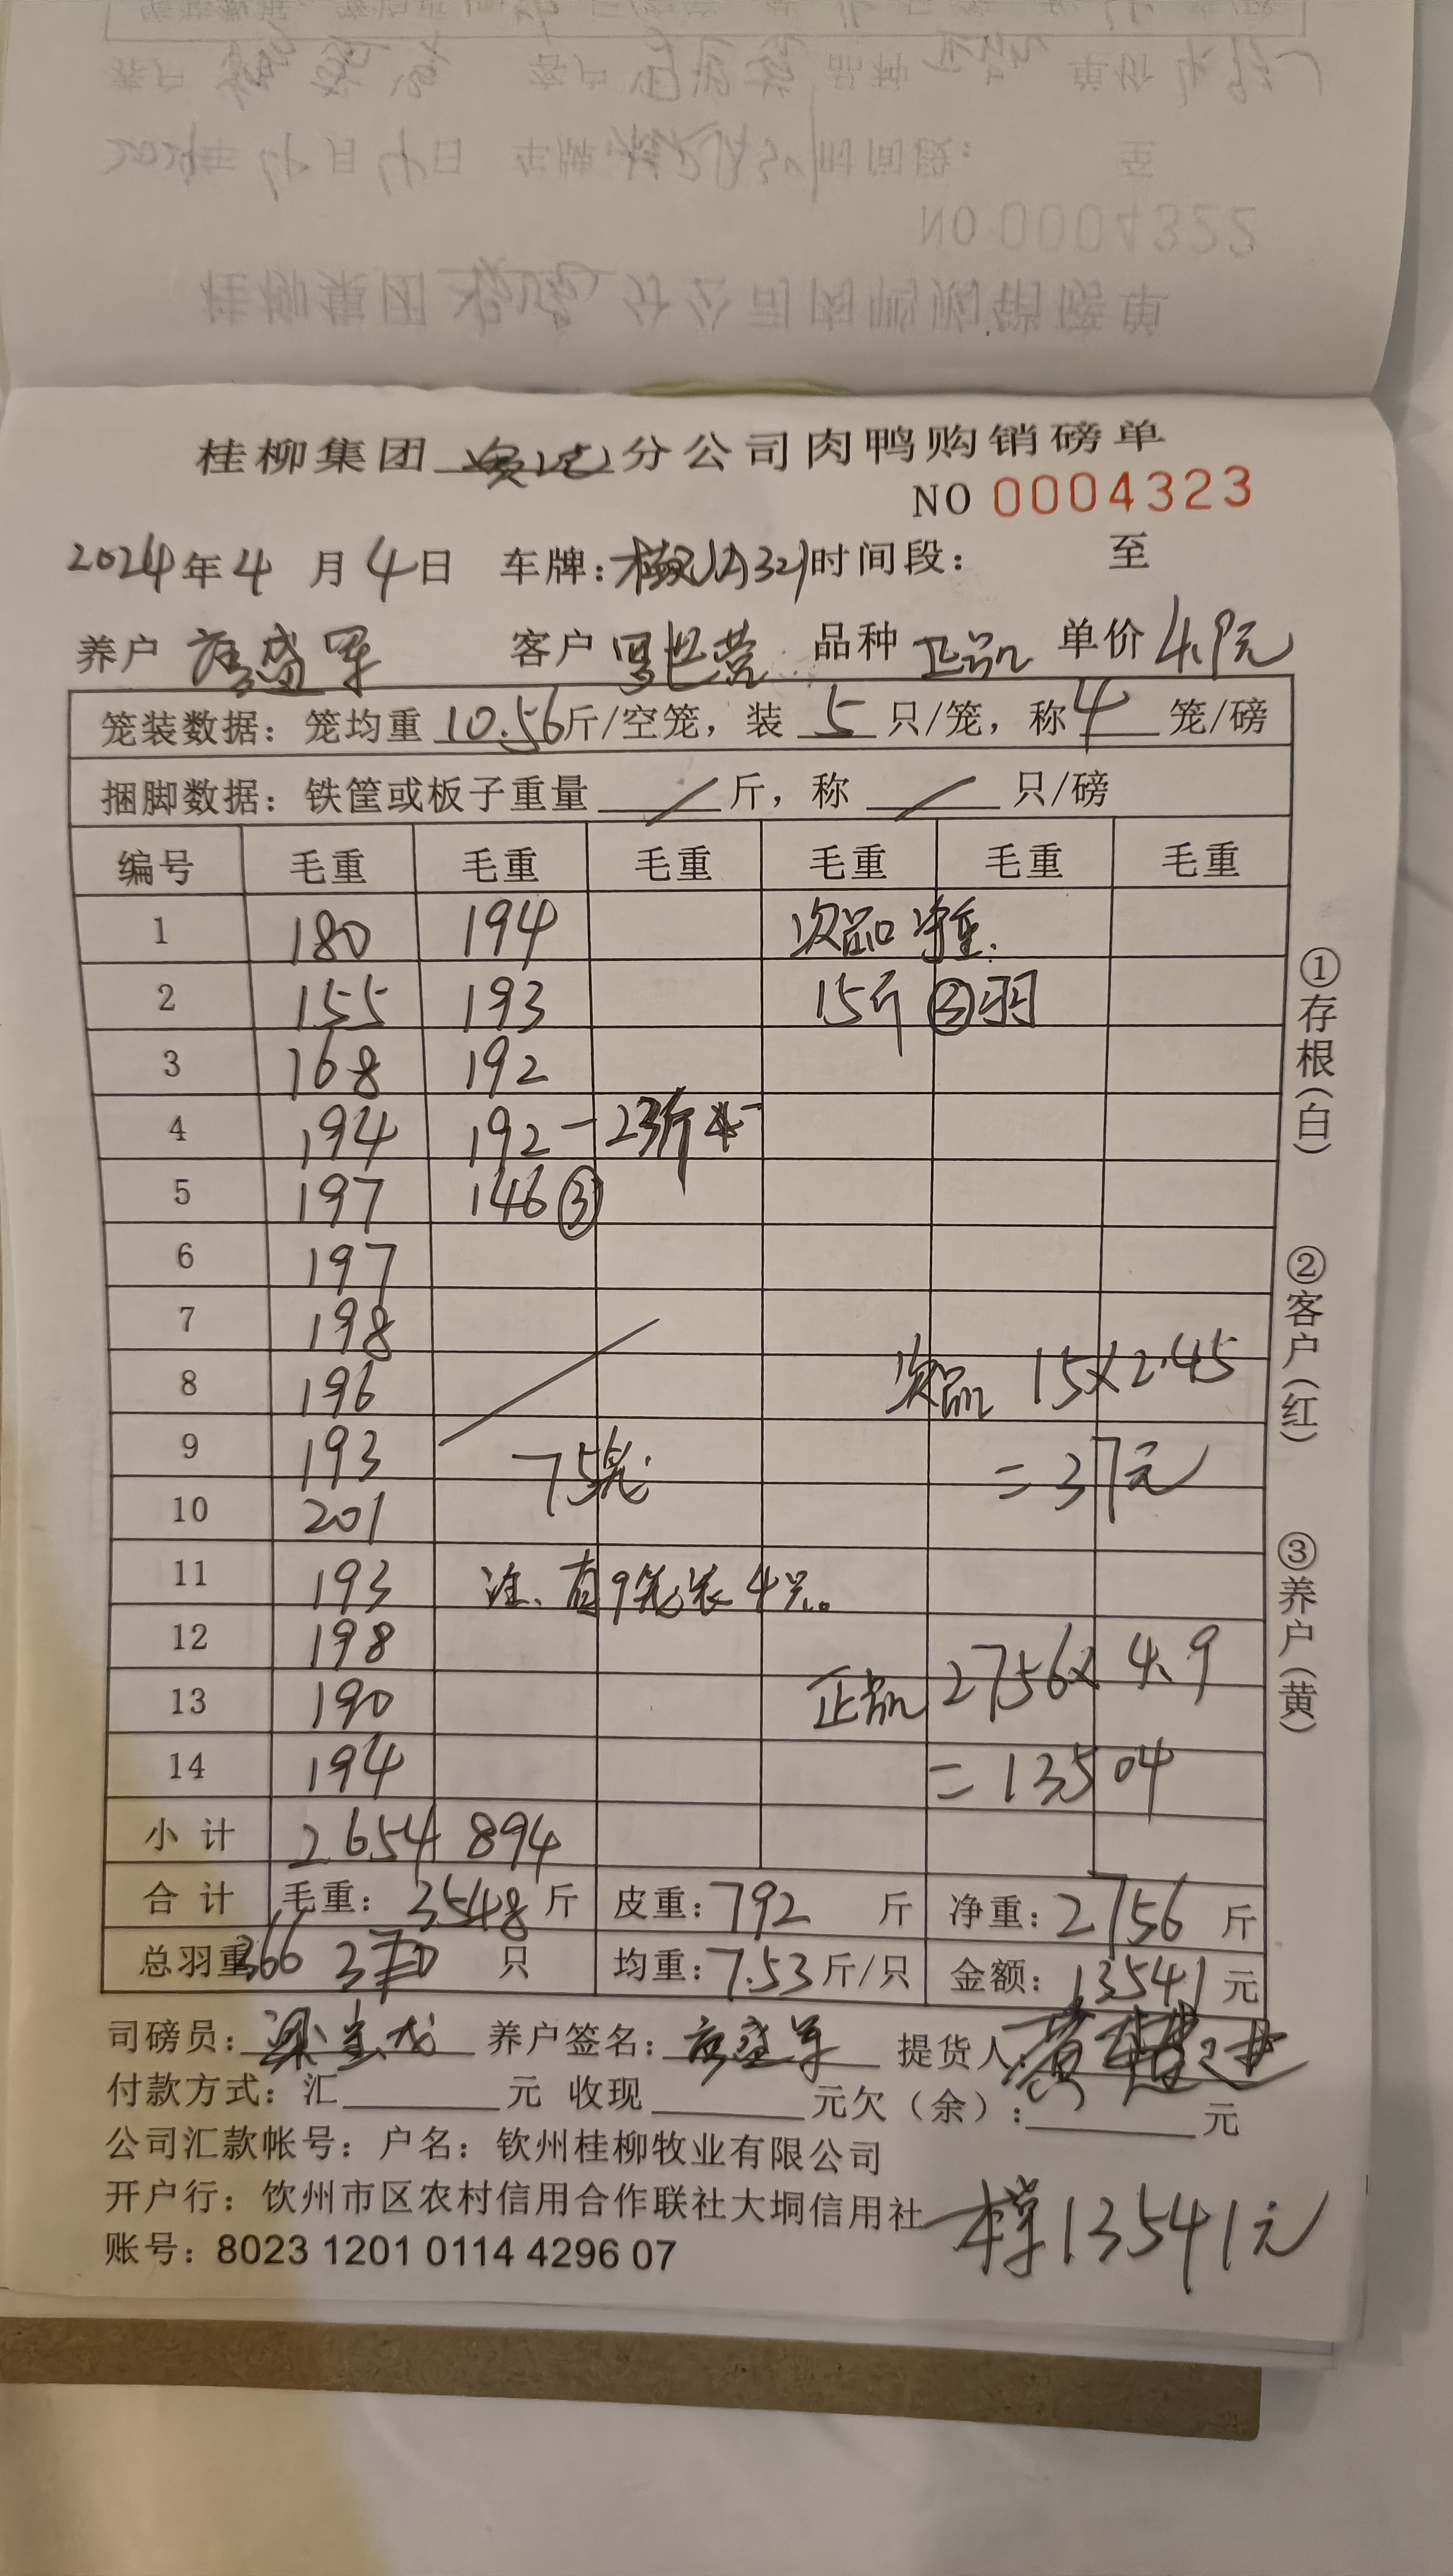 NO 0004322
桂柳集团 分公司肉鸭购销磅单
NO 0004323
2024年4月4日 车牌: 时间段: 至
养户 唐盛军 客户 罗世营 品种 正品 单价 4.9元
笼装数据: 笼均重 10.56斤/空笼, 装 5 只/笼, 称 4 笼/磅
捆脚数据: 铁筐或板子重量 / 斤, 称 / 只/磅
编号 毛重 毛重 毛重 毛重 毛重 毛重
1 180 194 次品 净重.
2 155 193 15斤 ②羽
3 168 192
4 194 192 -23斤
5 197 146 ③
6 197
7 198
8 196 次品 15×2.45
9 193 75笼 =37元
10 201
11 193 注、有9笼装4只。
12 198 正品 2756× 4.9
13 190
14 194 =13504
小计 2654 894
合计 毛重: 3548 斤 皮重: 792 斤 净重: 2756 斤
总羽重 366 370 只 均重: 7.53 斤/只 金额: 13541 元
司磅员: 养户签名: 唐盛军 提货人:
付款方式: 汇 元 收现 元欠(余): 元
公司汇款帐号: 户名: 钦州桂柳牧业有限公司
开户行: 饮州市区农村信用合作联社大垌信用社
13541元
账号: 8023 1201 0114 4296 07
①存根(白) ②客户(红) ③养户(黄)